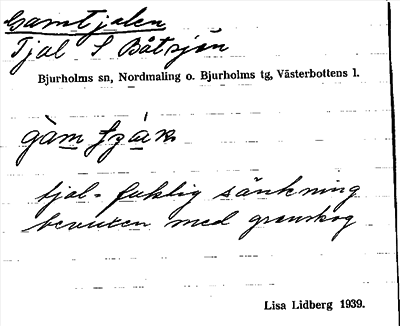 Gamtjalen
Tjal S Båtsjön
Bjurholms sn, Nordmaling o. Bjurholms tg, Västerbottens l.
tjal = fuktig sänkning
bevuxen med granskog
Lisa Lidberg 1939.